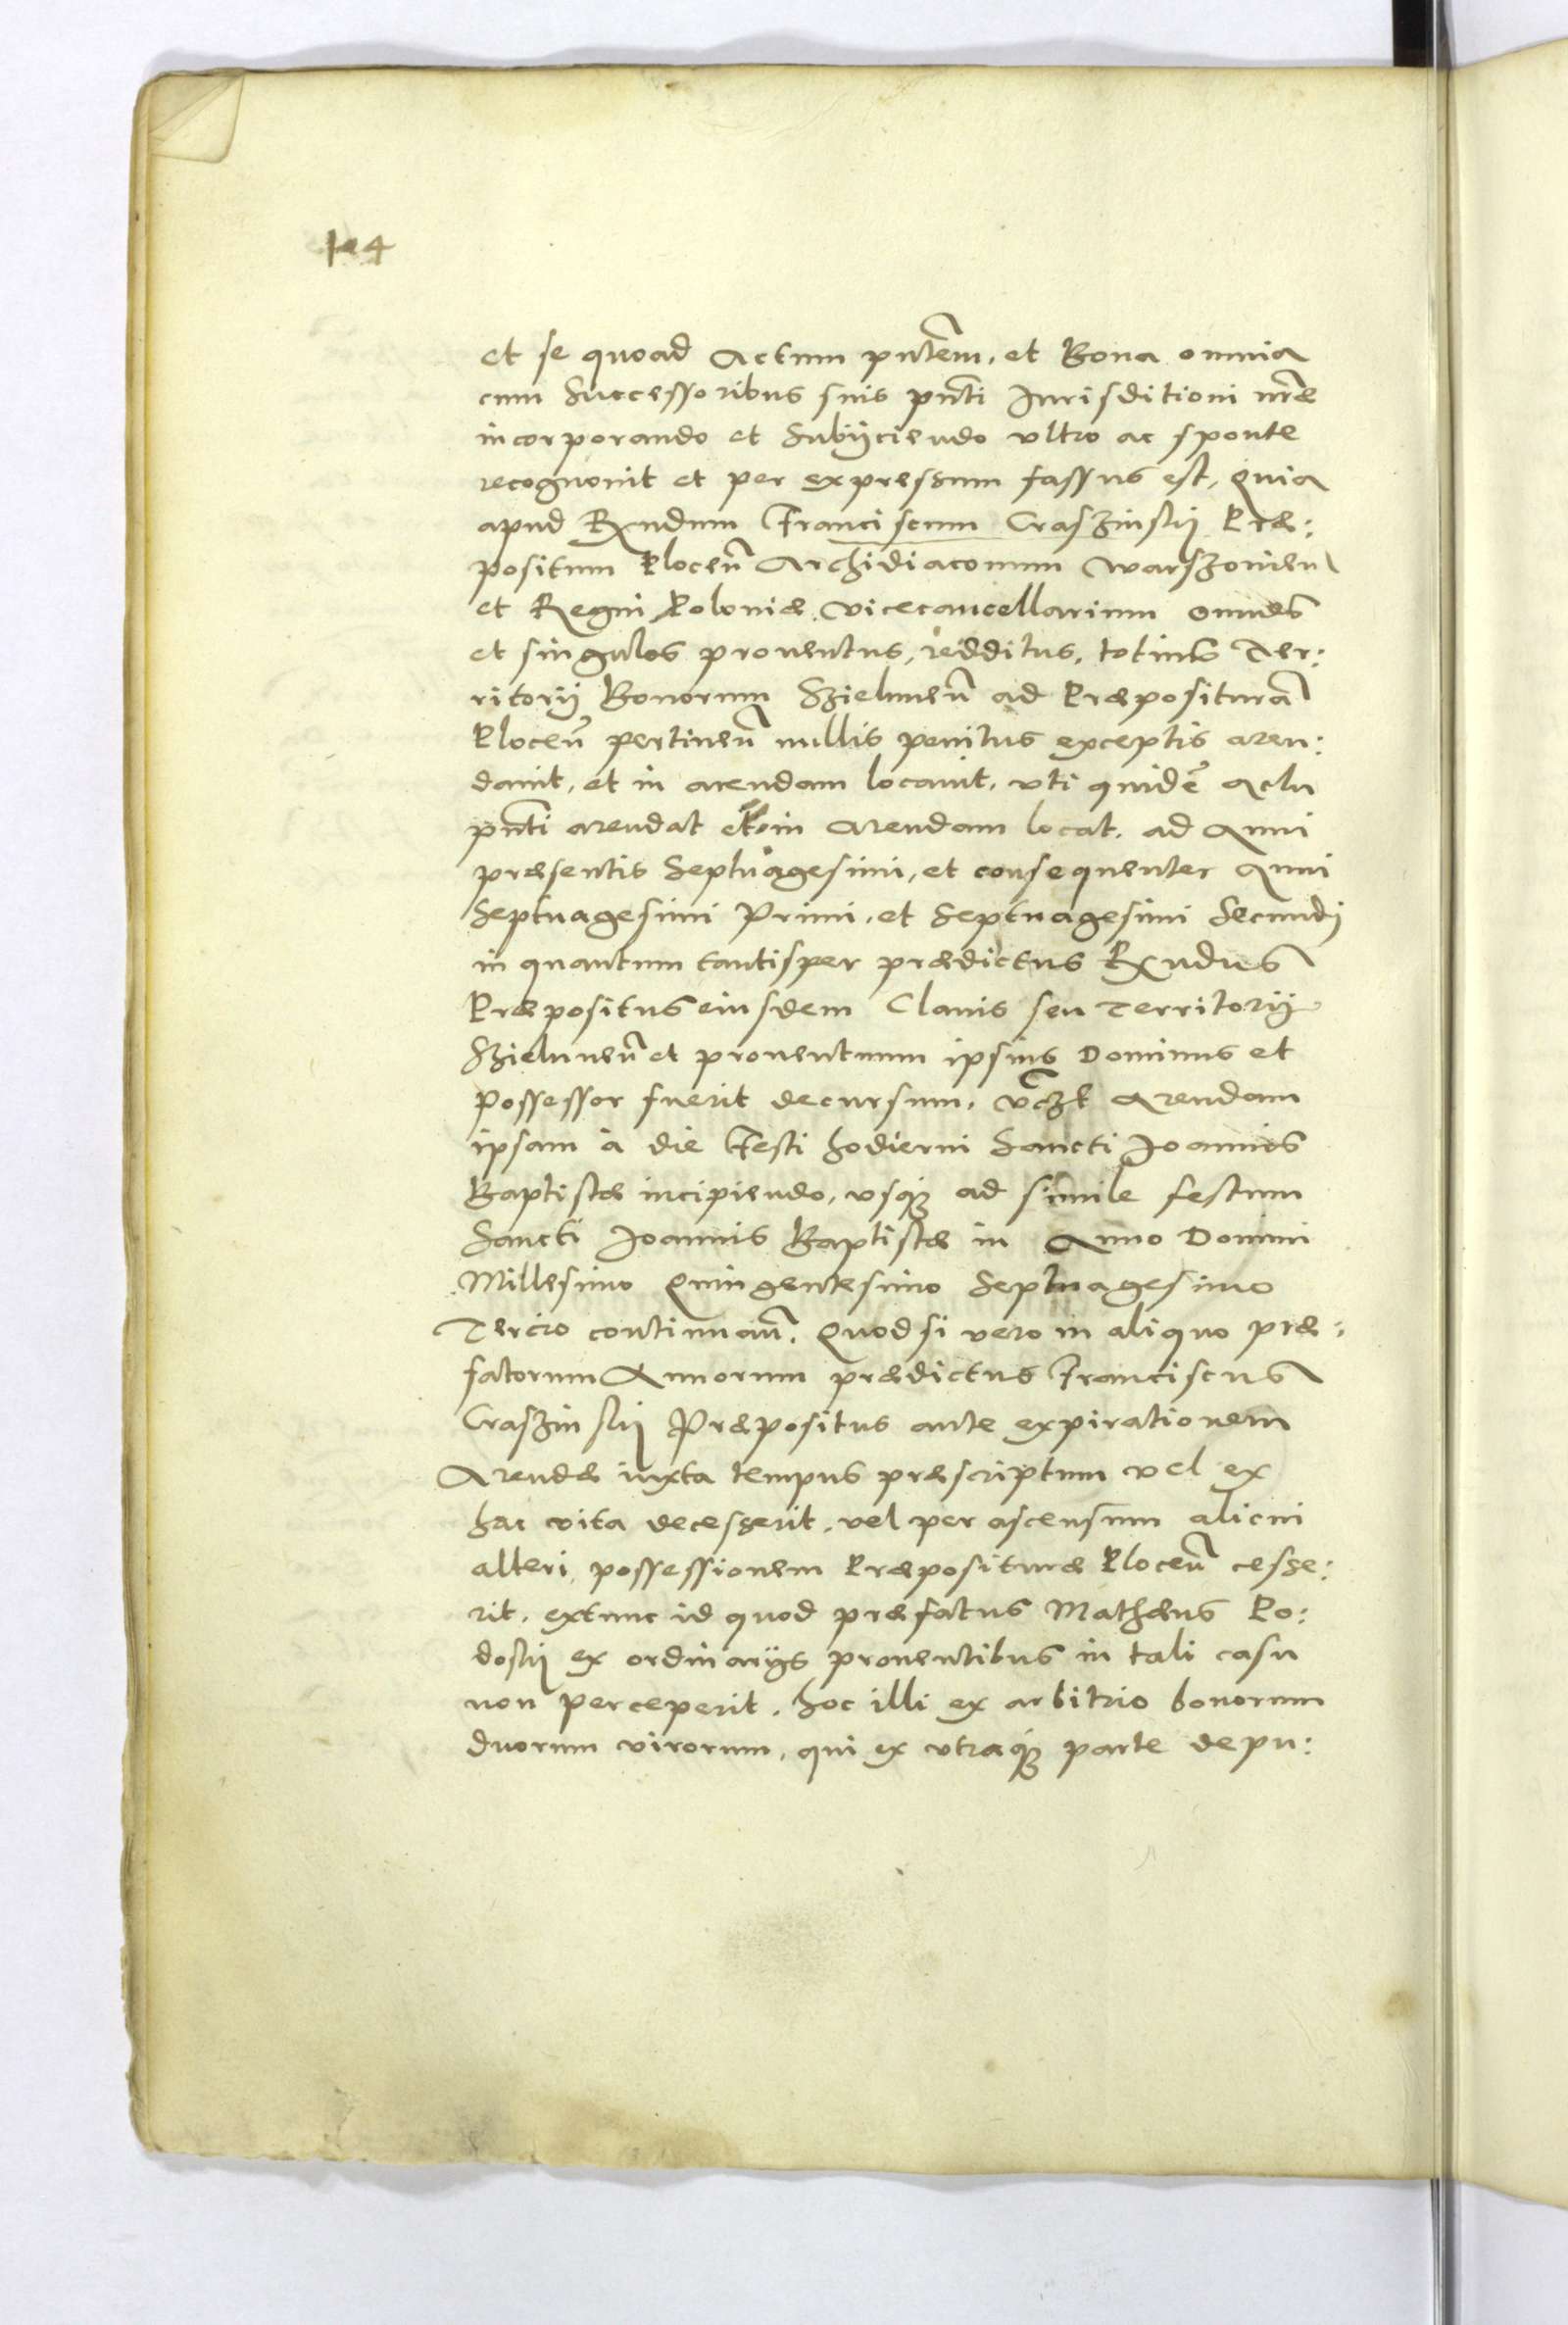 104
et se quoad Actum pntem, et Bona omnia
cum Successoribus suis pnti Iurisditioni nræ
incorporando et Subijciendo ultro ac sponte
recognouit et per expressum fassus est, Quia
apud Rndum Franciscum Craszinskj Præ:
positum Plocen Archidiaconum Warszouien
et Regni Poloniæ Vicecancellarium omnes
et singulos prouentus, redditus, totius Ter:
ritorij Bonorum Szielunen ad Præposituram
Plocen pertinen nullis penitus exceptis aren:
dauit, et in arendam locauit, uti quidem actu
pnti arendat et in Arendam locat, ad Anni
præsentis Septuagesimi, et consequenter Anni
Septuagesimi Primi, et Septuagesimi Secundj
in quantum tantisper prædictus Rndus
Præpositus eiusdem Clauis seu Territorij
Szielunen et prouentuum ipsius Dominus et
Possessor fuerit decursum, vczt Arendam
ipsam à die Festi hodierni Sancti Joannis
Baptistæ incipiendo, usque ad simile festum
Sancti Joannis Baptistæ in Anno Domini
Millesimo Quingentesimo Septuagesimo
Tercio continuan. Quod si vero in aliquo præ:
fatorum Annorum prædictus Franciscus
Craszinskj Præpositus ante expirationem
Arendæ iuxta tempus præscriptum vel ex
hac vita decesserit, vel per ascensum alicui
alteri, possessionem Præposituræ Plocen cesse:
rit, extunc id quod præfatus Mathæus Po:
doskj ex ordinarijs prouentibus in tali casu
non perceperit, hoc illi ex arbitrio bonorum
duorum virorum, qui ex utraque parte depu: